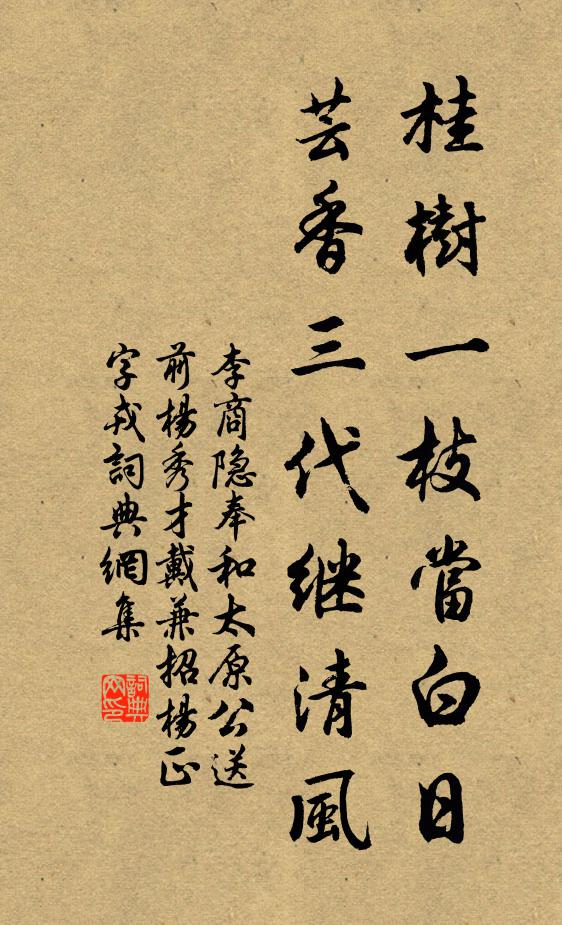 桂樹一枝當白日
芸香三代继清風
李商隐奉和太原公送
前楊秀才戴兼招楊正
字戎詞典網集
詞典网印